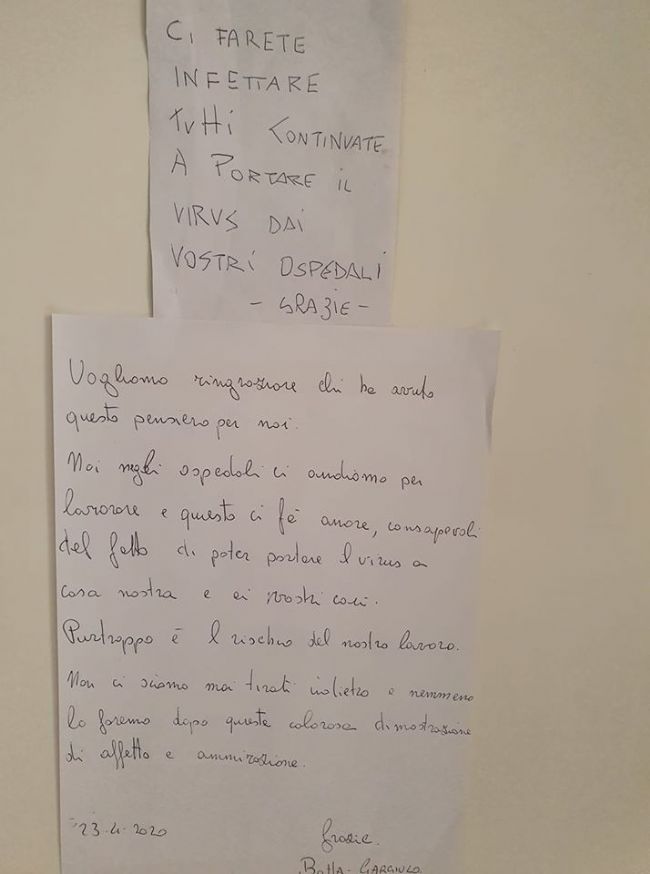 CI FARETE
INFETTARE
TUTTI CONTINUATE
A PORTARE IL
VIRUS DAI
VOSTRI OSPEDALI
- GRAZIE -
Vogliamo ringraziare chi ha avuto
questo pensiero per noi.
Noi negli ospedali ci andiamo per
lavorare e questo ci fà onore, consapevoli
del fatto di poter portare il virus a
casa nostra e ai nostri cari.
Purtroppo è il rischio del nostro lavoro.
Non ci siamo mai tirati indietro e nemmeno
lo faremo dopo questa calorosa dimostrazione
di affetto e ammirazione.
23.4.2020
Grazie.
Botta - GARGIULO